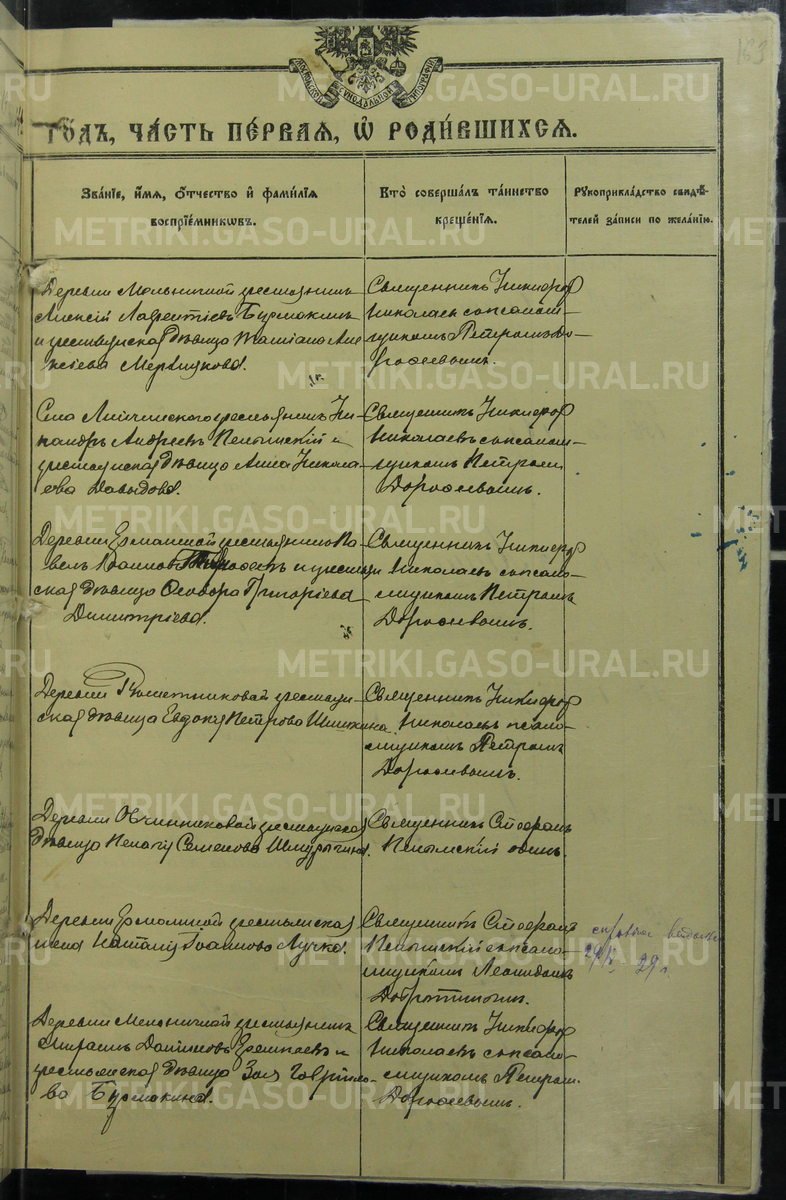 163
МОСКОВСКОЙ СѴНОДАЛЬНОЙ ТИПОГРАФІИ
ГОДЪ, ЧАСТЬ ПЕРВАЯ, Ѡ РОДИВШИХСЯ.
Званіе, имя, отчество и фамилія
воспріемниковъ.
Кто совершалъ таинство
крещенія.
Рукоприкладство свидѣ-
телей записи по желанію.
Деревни Мельничной крестьянинъ
Алексій Лаврентіевъ Бурмакинъ
и крестьянская дѣвица Татіана Але
ксіева Мерзлякова.
Священникъ Никифоръ
Николаевъ съ псалом-
щикомъ Петромъ До-
рофеевымъ.
Села Липчинскаго крестьянинъ Ни-
кандръ Андреевъ Пелымскій и
крестьянская дѣвица Анна Никола-
ева Давыдова.
Священникъ Никифоръ
Николаевъ съ псалом-
щикомъ Петромъ
Дорофеевымъ.
Деревни Ермолиной крестьянинъ Па-
велъ Іоанновъ и крестьян
ская дѣвица Ѳеодора Григоріева
Димитріева.
Священникъ Никифоръ
Николаевъ съ псало-
мщикомъ Петромъ
Дорофеевымъ.
Деревни Рѣшетниковой крестьян-
ская дѣвица Евдокія Петрова Шишкина.
Священникъ Никифоръ
Николаевъ псало-
мщикомъ Петромъ
Дорофеевымъ.
Деревни Овчинниковой крестьянская
дѣвица Пелагія Семенова
Священникъ Стефанъ
Пелымскій одинъ.
Деревни Ермолиной крестьянская
жена Наталія Іоаннова
Священникъ Стефанъ
Пелымскій съ псало-
мщикомъ Леонидомъ
справка выдана
29 г.
Деревни Мельничной крестьянинъ
Даніиловъ и
крестьянская дѣвица Зоя Гаврило-
ва Бурмакина.
Священникъ Никифоръ
Николаевъ съ псалом-
щикомъ Петром.
Дорофеевымъ.
METRIKI.GASO-URAL.RU